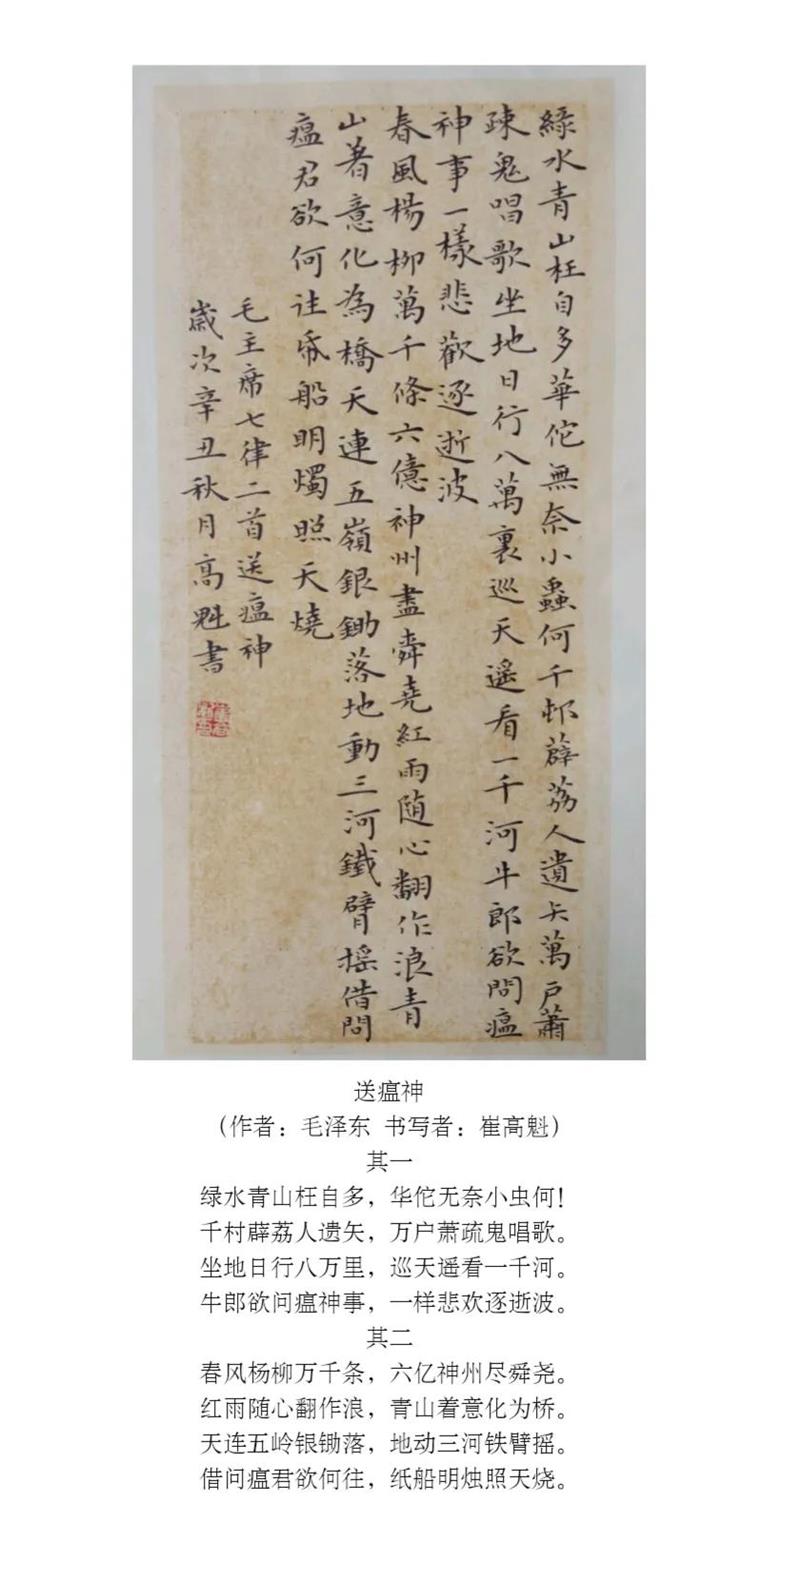 綠水青山枉自多華佗無奈小蟲何千邨薜荔人遺矢萬戶蕭
疎鬼唱歌坐地日行八萬裏巡天遥看一千河牛郎欲問瘟
神事一樣悲歡逐逝波
春風楊柳萬千條六億神州盡舜堯紅雨随心翻作浪青
山著意化為橋天連五嶺銀鋤落地動三河鐵臂摇借問
瘟君欲何往帋船明燭照天燒
毛主席七律二首送瘟神
歲次辛丑秋月高魁書
送瘟神
（作者：毛泽东 书写者：崔高魁）
其一
绿水青山枉自多，华佗无奈小虫何！
千村薜荔人遗矢，万户萧疏鬼唱歌。
坐地日行八万里，巡天遥看一千河。
牛郎欲问瘟神事，一样悲欢逐逝波。
其二
春风杨柳万千条，六亿神州尽舜尧。
红雨随心翻作浪，青山着意化为桥。
天连五岭银锄落，地动三河铁臂摇。
借问瘟君欲何往，纸船明烛照天烧。